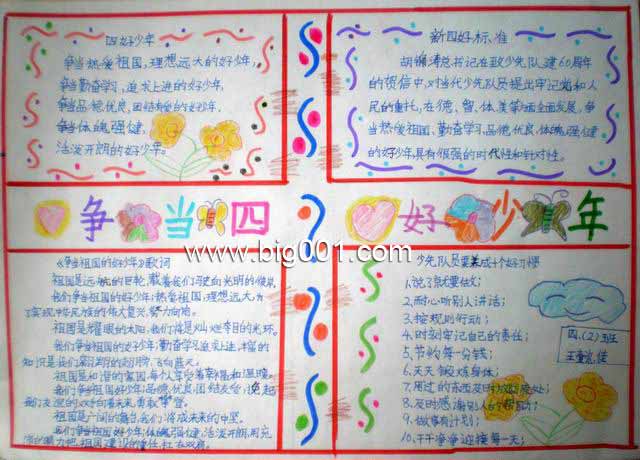 四好少年
争当热爱祖国,理想远大的好少年;
争当勤奋学习,追求上进的好少年;
争当品德优良,团结友爱的好少年;
争当体魄强健,
活泼开朗的好少年。
新四好标准
胡锦涛总书记在致少先队建60周年
的贺信中,对当代少先队员提出牢记党和人
民的重托,在德、智、体、美等方面全面发展,争
当热爱祖国、勤奋学习、品德优良、体魄强健
的好少年具有很强的时代性和针对性。
争当四
好少年
www.big001.com
《争当祖国的好少年》歌词
祖国是远航的巨轮,载着我们驶向光明的
我们争当祖国的好少年,热爱祖国,理想远大,为
了实现中华民族的伟大复兴努力向前。
祖国是耀眼的太阳,我们将是灿烂夺目的光环。
我们争当祖国的好少年,勤奋学习追求上进,丰富的
知识是我们翱翔的翅膀,飞向蓝天。
祖国是和谐的家园,每个人享受着幸福和温暖。
我们争当祖国好少年,品德优良,团结友爱,
祖国是广阔的舞台,我们将成未来的中坚。
我们争当祖国好少年,体魄强健,活泼开朗,用充
少先队员要养成十个好习惯
1、说了就要做;
2、耐心听别人讲话;
3、按规则行动;
4、时刻牢记自己的责任;
5、节约每一分钱;
6、天天锻炼身体;
7、用过的东西及时放回原处;
8、及时感谢别人的帮助;
9、做事有计划;
10、干干净净迎接每一天;
四.(2)班